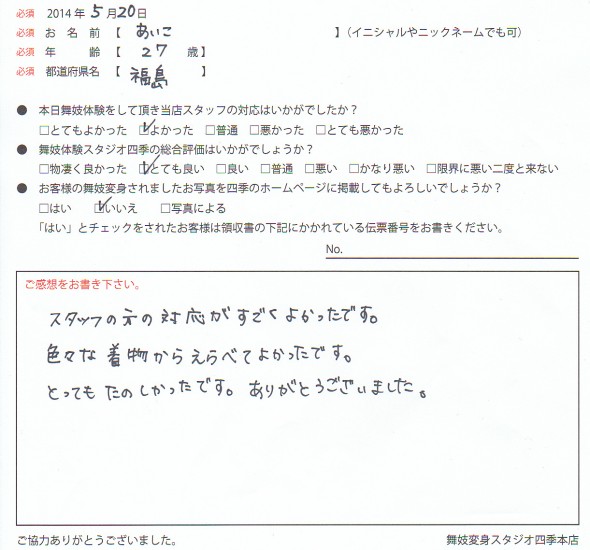 必須 2014年5月20日
必須 お名前【 あいこ 】(イニシャルやニックネームでも可)
必須 年齢【 27 歳】
必須 都道府県名【 福島 】
● 本日舞妓体験をして頂き当店スタッフの対応はいかがでしたか？
□とてもよかった ☑よかった □普通 □悪かった □とても悪かった
● 舞妓体験スタジオ四季の総合評価はいかがでしょうか？
□物凄く良かった ☑とても良い □良い □普通 □悪い □かなり悪い □限界に悪い二度と来ない
● お客様の舞妓変身されましたお写真を四季のホームページに掲載してもよろしいでしょうか？
□はい ☑いいえ □写真による
「はい」とチェックをされたお客様は領収書の下記にかかれている伝票番号をお書きください。
No.
ご感想をお書き下さい。
スタッフの方の対応がすごくよかったです。
色々な着物からえらべてよかったです。
とってもたのしかったです。ありがとうございました。
ご協力ありがとうございました。 舞妓変身スタジオ四季本店